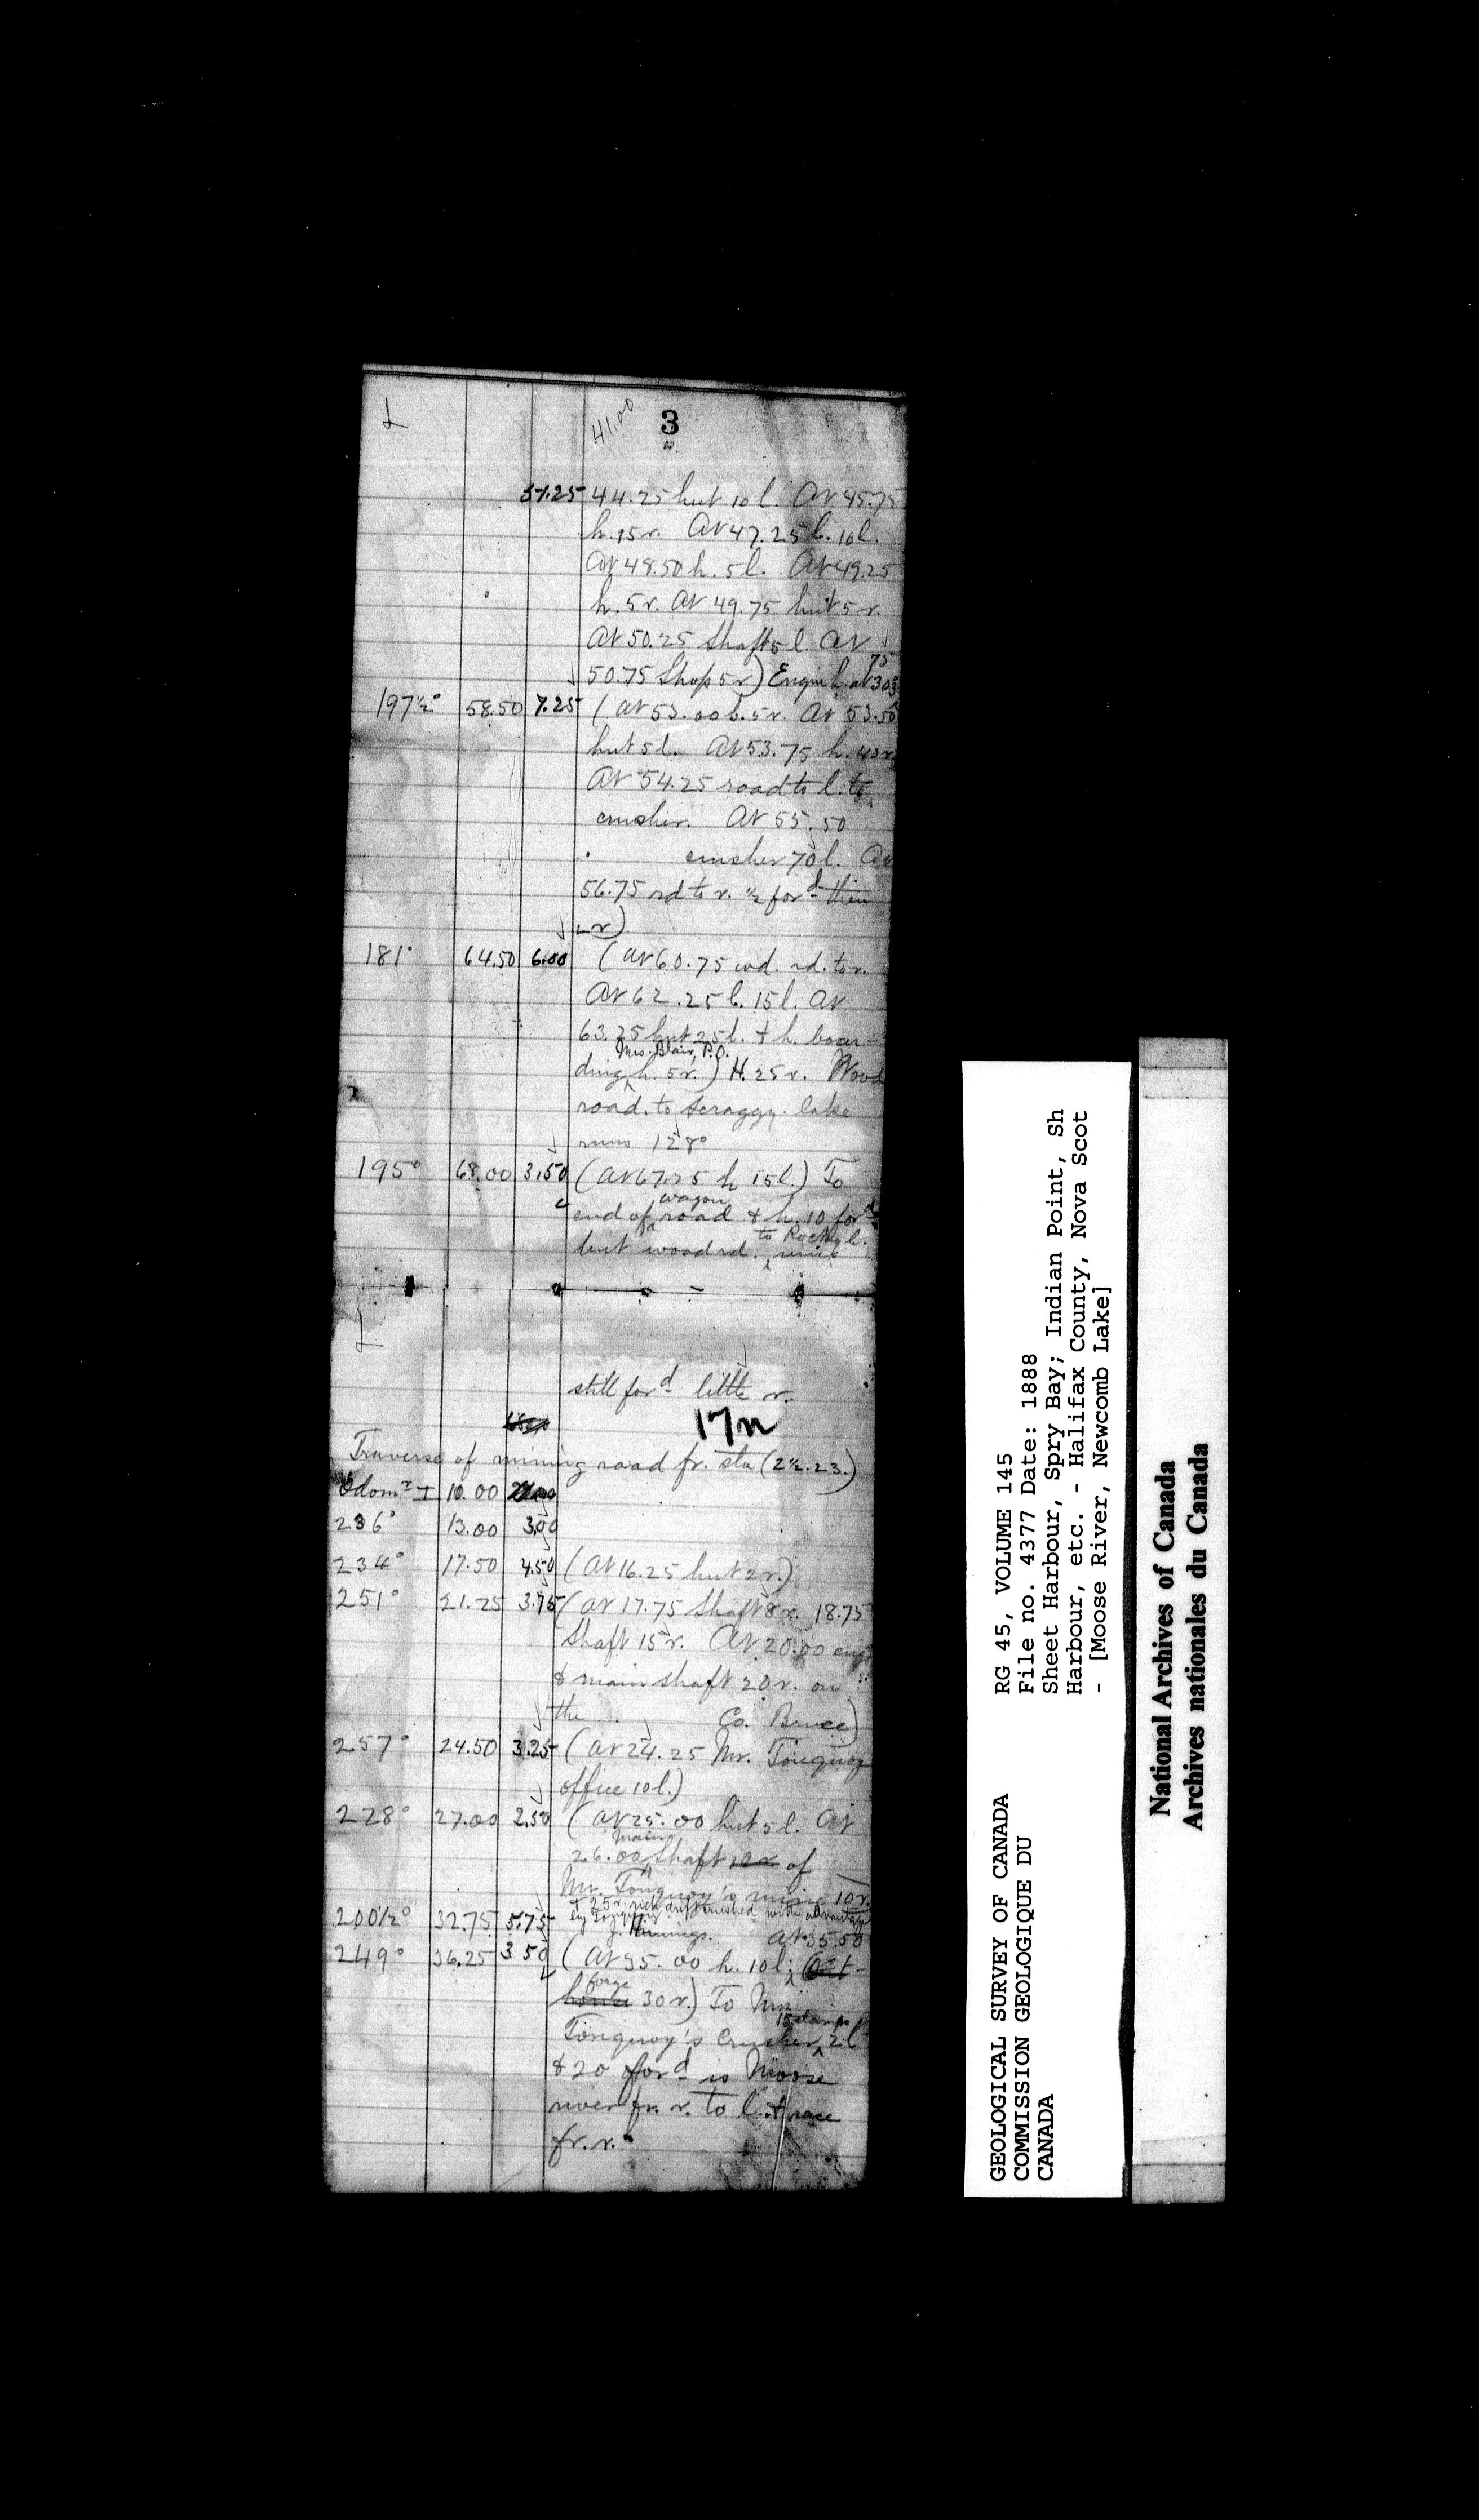 41.00 3
51.25 44.25 hut 10 l. At 45.75
h. 15 r. At 47.25 b. 10 l.
At 48.50 h. 5 l. At 49.25
h. 5 r. At 49.75 hut 5 r.
At 50.25 Shaft 5 l. At
50.75 Shop 5 r.) Engine h. at 30
75
197½° 58.50 7.25 (At 53.00 b. 5 r. At 53.50
hut 5 l. At 53.75 h. 40 r.
At 54.25 road to l. to
crusher. At 55.50
crusher 70 l. At
56.75 rd to r. ½ ford then
r)
181° 64.50 6.00 (At 60.75 wd. rd. to r.
At 62.25 b. 15 l. At
63.25 hut 25 l. + h. boar-
Mrs. Blair, P.O.
ding h. 5 r.) H. 25 r. Wood
road to Scraggy lake
runs 128°
195° 68.00 3.50 (At 67.25 h 15 l.) To
wagon
end of road & h. 10 ford
to Rocky l.
but wood rd.
still ford little r.
17n
Traverse of mining road fr. sta (2½.23.)
Odomr I 10.00
236° 13.00 3.00
234° 17.50 4.50 (At 16.25 hut 2 r.)
251° 21.25 3.75 (At 17.75 Shaft 8 r. 18.75
Shaft 15 r. At 20.00 eng
& main shaft 20 r. on
the Co. Bruce)
257° 24.50 3.25 (At 24.25 Mr. Touquoy
office 10 l.)
228° 27.00 2.50 (At 25.00 hut 5 l. At
main
26.00 Shaft of
Mr. Touquoy's mine 10 r.
+ 25 r. rich drift crushed with advantage
200½° 32.75 5.75 by Touquoy
J. At 35.50
249° 36.25 3.50 (At 35.00 h. 10 l.
forge
house 30 r.) To Mr.
15 stamps
Touquoy's Crusher 2 l
& 20 ford is Moose
river fr. r. to l. + race
fr. r.
GEOLOGICAL SURVEY OF CANADA
COMMISSION GEOLOGIQUE DU
CANADA
RG 45, VOLUME 145
File no. 4377 Date: 1888
Sheet Harbour, Spry Bay; Indian Point, Sh
Harbour, etc. - Halifax County, Nova Scot
- [Moose River, Newcomb Lake]
National Archives of Canada
Archives nationales du Canada